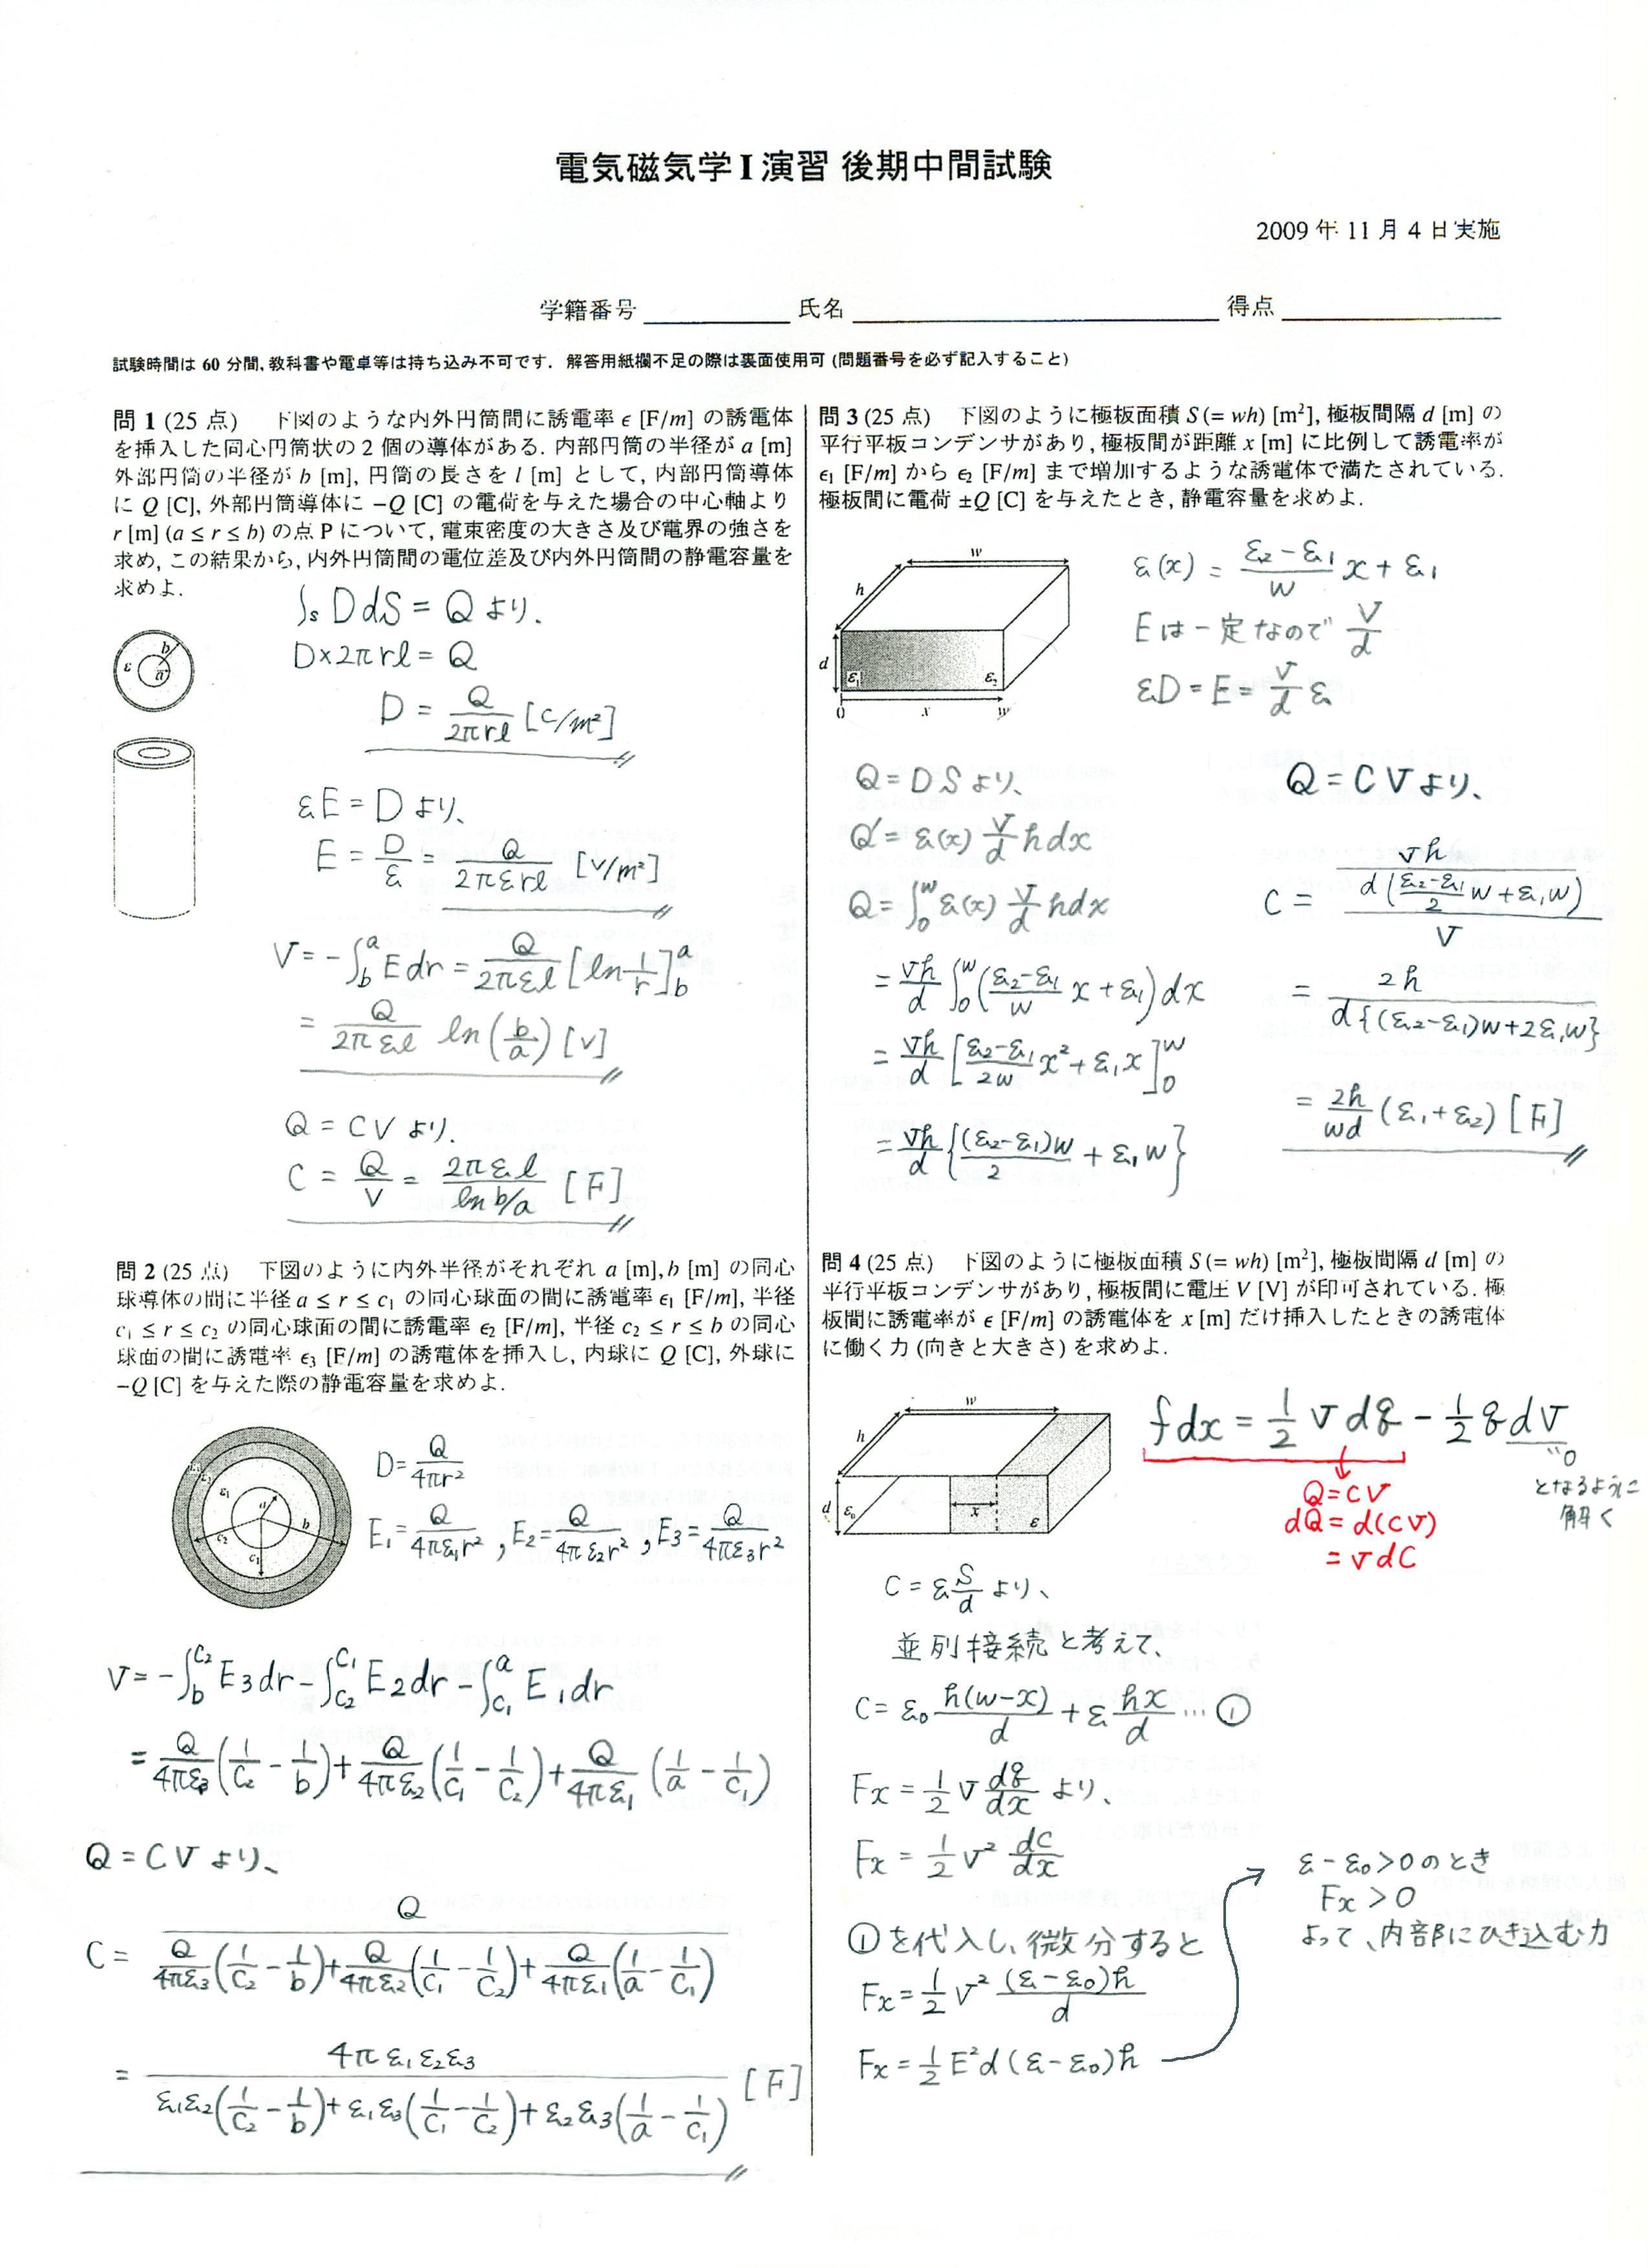 電気磁気学 I 演習 後期中間試験
2009 年 11 月 4 日実施
学籍番号 氏名 得点
試験時間は 60 分間, 教科書や電卓等は持ち込み不可です. 解答用紙欄不足の際は裏面使用可 (問題番号を必ず記入すること)
問 1 (25 点) 下図のような内外円筒間に誘電率 ϵ [F/m] の誘電体
を挿入した同心円筒状の 2 個の導体がある. 内部円筒の半径が a [m]
外部円筒の半径が b [m], 円筒の長さを l [m] として, 内部円筒導体
に Q [C], 外部円筒導体に −Q [C] の電荷を与えた場合の中心軸より
r [m] (a ≤ r ≤ b) の点 P について, 電束密度の大きさ及び電界の強さを
求め, この結果から, 内外円筒間の電位差及び内外円筒間の静電容量を
求めよ.
ε b a
∫s D dS = Q より、
D×2πrl = Q
D = Q/2πrl [C/m²]
εE = D より、
E = D/ε = Q/2πεrl [V/m²]
V = -∫_b^a E dr = Q/2πεl [ln 1/r]_b^a
= Q/2πεl ln(b/a) [V]
Q = CV より.
C = Q/V = 2πεl/ln b/a [F]
問 2 (25 点) 下図のように内外半径がそれぞれ a [m], b [m] の同心
球導体の間に半径 a ≤ r ≤ c₁ の同心球面の間に誘電率 ϵ₁ [F/m], 半径
c₁ ≤ r ≤ c₂ の同心球面の間に誘電率 ϵ₂ [F/m], 半径 c₂ ≤ r ≤ b の同心
球面の間に誘電率 ϵ₃ [F/m] の誘電体を挿入し, 内球に Q [C], 外球に
−Q [C] を与えた際の静電容量を求めよ.
ε₁ a b c₂ c₁
D = Q/4πr²
E₁ = Q/4πε₁r² , E₂ = Q/4πε₂r² , E₃ = Q/4πε₃r²
V = -∫_b^{C₂} E₃dr - ∫_{C₂}^{C₁} E₂dr - ∫_{C₁}^a E₁dr
= Q/4πε₃ (1/C₂ - 1/b) + Q/4πε₂ (1/C₁ - 1/C₂) + Q/4πε₁ (1/a - 1/C₁)
Q = CV より、
C = Q / Q/4πε₃ (1/C₂ - 1/b) + Q/4πε₂ (1/C₁ - 1/C₂) + Q/4πε₁ (1/a - 1/C₁)
= 4πε₁ε₂ε₃ / ε₁ε₂(1/C₂ - 1/b) + ε₁ε₃(1/C₁ - 1/C₂) + ε₂ε₃(1/a - 1/C₁) [F]
問 3 (25 点) 下図のように極板面積 S (= wh) [m²], 極板間隔 d [m] の
平行平板コンデンサがあり, 極板間が距離 x [m] に比例して誘電率が
ϵ₁ [F/m] から ϵ₂ [F/m] まで増加するような誘電体で満たされている.
極板間に電荷 ±Q [C] を与えたとき, 静電容量を求めよ.
w h d ε₁ ε₂ 0 x w
ε(x) = ε₂-ε₁/w x + ε₁
E は一定なので V/d
εD = E = V/d ε
Q = DS より、
Q' = ε(x) V/d h dx
Q = ∫_0^w ε(x) V/d h dx
= Vh/d ∫_0^w (ε₂-ε₁/w x + ε₁) dx
= Vh/d [ε₂-ε₁/2w x² + ε₁x]_0^w
= Vh/d {(ε₂-ε₁)w/2 + ε₁w}
Q = CV より、
C = Vh / d(ε₂-ε₁/2 w + ε₁w) / V
= 2h / d{(ε₂-ε₁)w + 2ε₁w}
= 2h/wd (ε₁+ε₂) [F]
問 4 (25 点) 下図のように極板面積 S (= wh) [m²], 極板間隔 d [m] の
平行平板コンデンサがあり, 極板間に電圧 V [V] が印可されている. 極
板間に誘電率が ϵ [F/m] の誘電体を x [m] だけ挿入したときの誘電体
に働く力 (向きと大きさ) を求めよ.
w h d ε₀ x ε
f dx = 1/2 V dq - 1/2 q dV
"0
となるように
解く
Q = CV
dQ = d(CV)
= V dC
C = ε S/d より、
並列接続と考えて、
C = ε₀ h(w-x)/d + ε hx/d … ①
Fx = 1/2 V dq/dx より、
Fx = 1/2 V² dC/dx
①を代入し、微分すると
Fx = 1/2 V² (ε-ε₀)h/d
Fx = 1/2 E² d (ε-ε₀)h
ε-ε₀>0のとき
Fx > 0
よって、内部にひき込む力